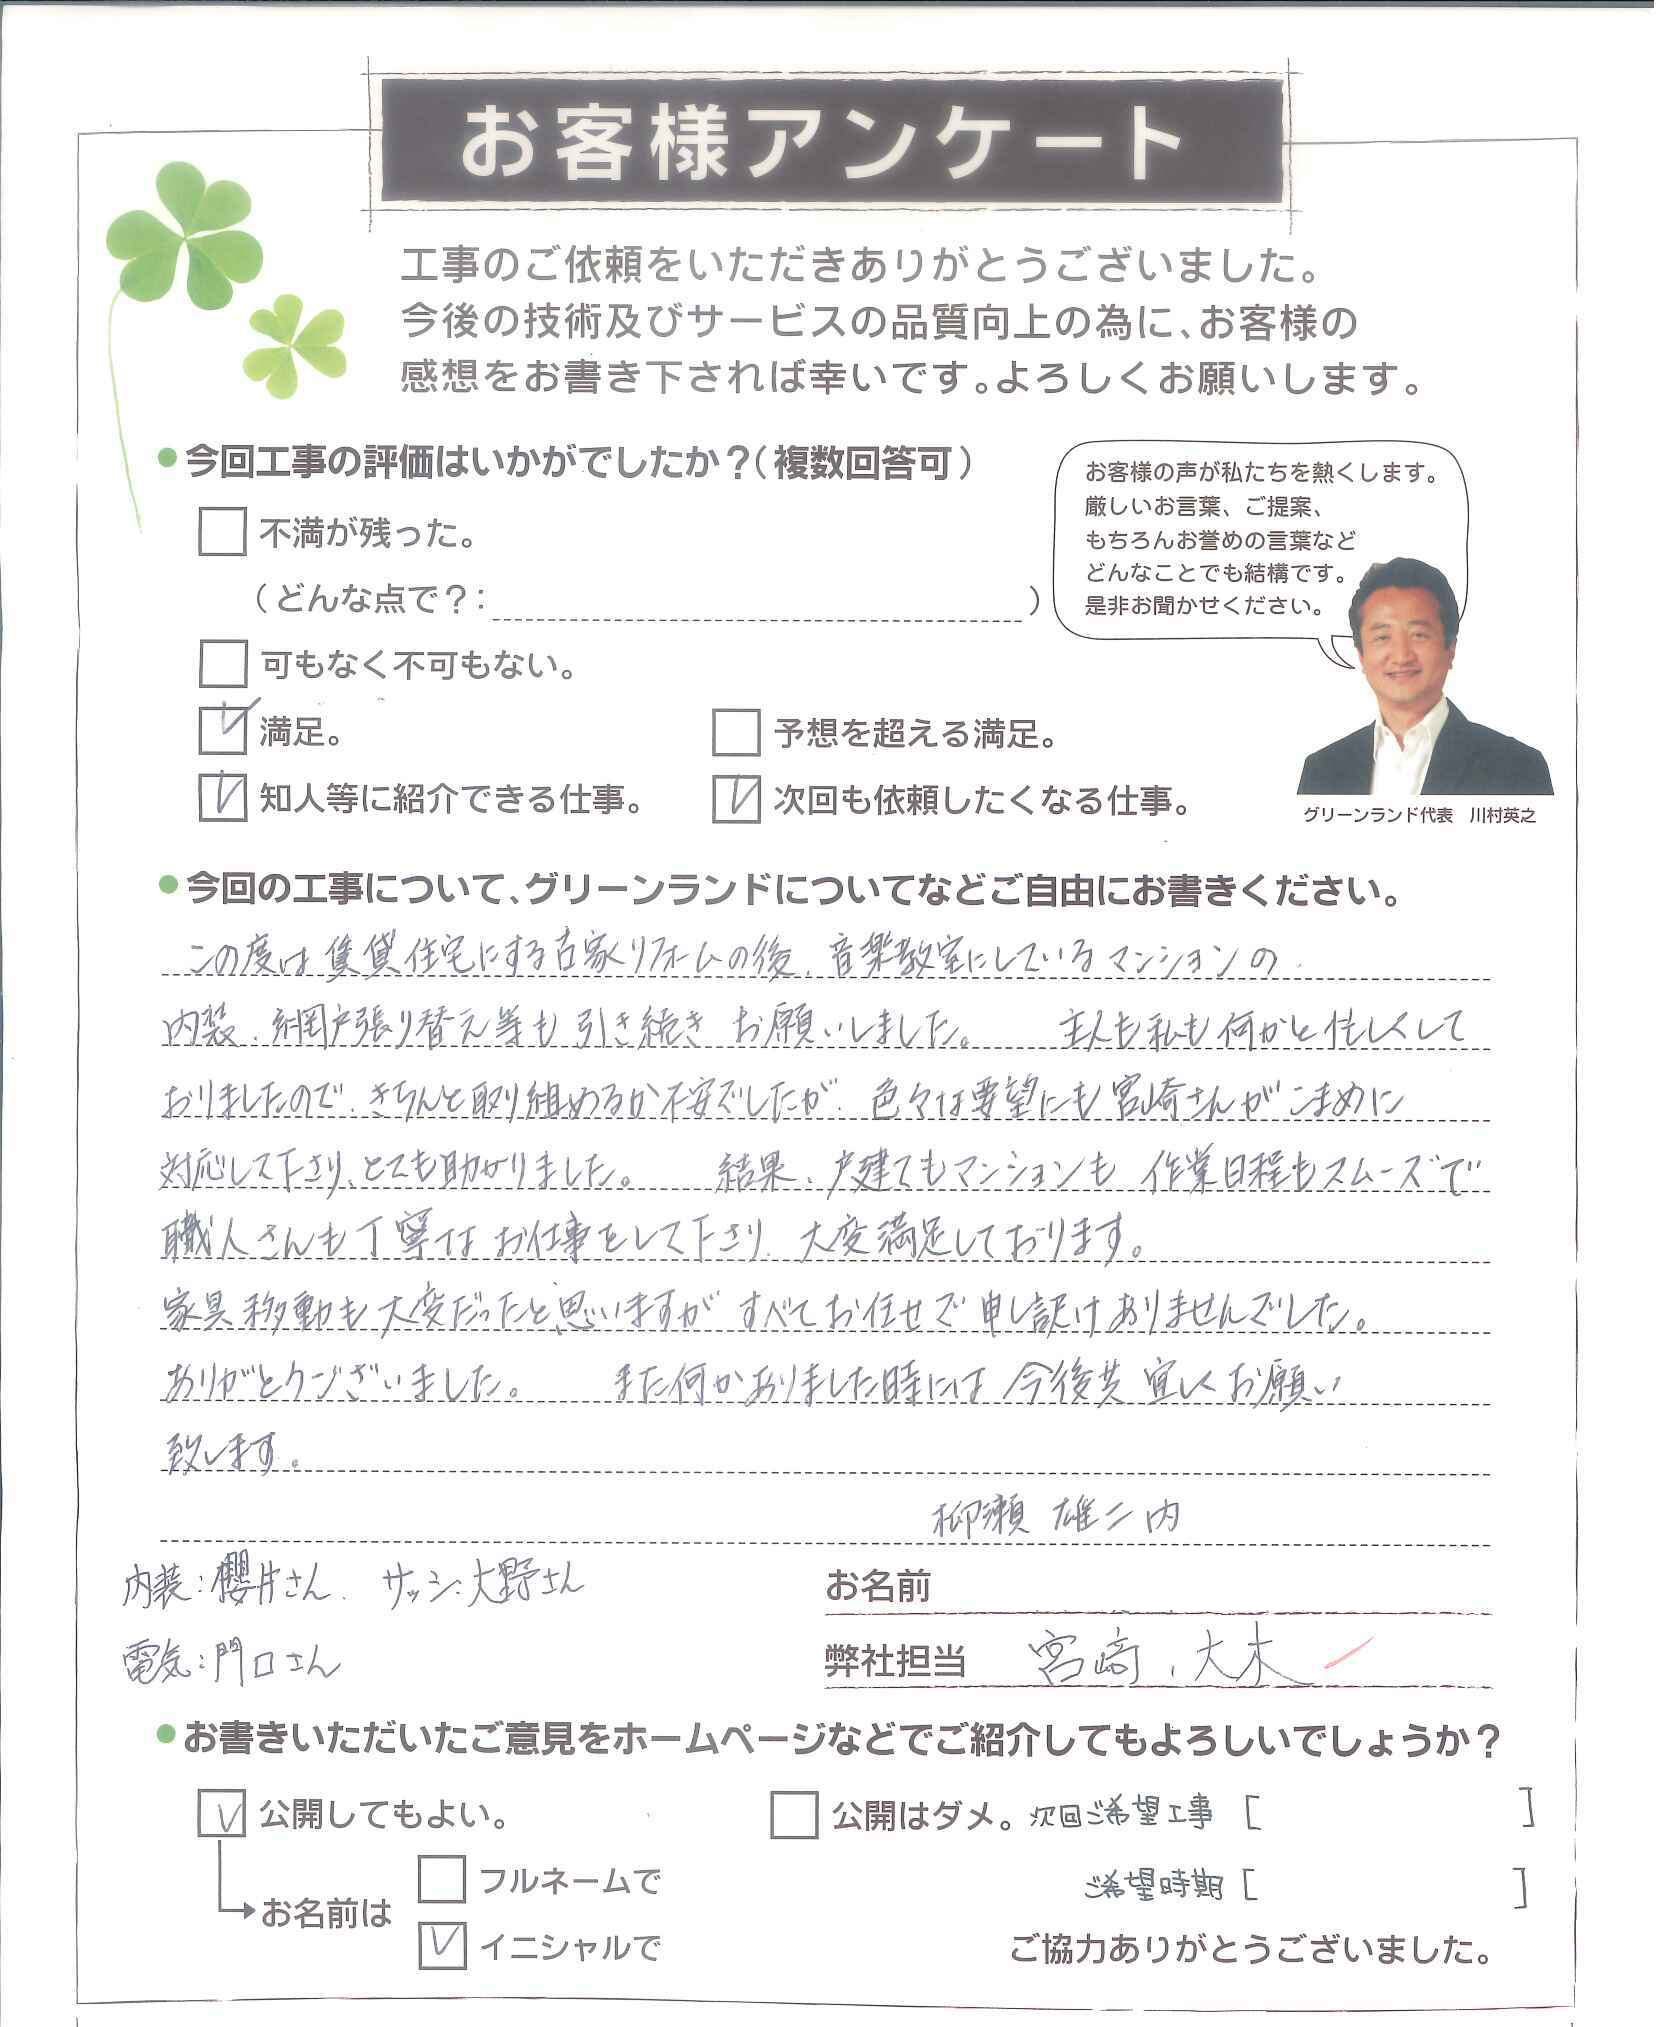 お客様アンケート
工事のご依頼をいただきありがとうございました。
今後の技術及びサービスの品質向上の為に、お客様の
感想をお書き下されば幸いです。よろしくお願いします。
今回工事の評価はいかがでしたか？（複数回答可）
不満が残った。
（どんな点で？： ）
可もなく不可もない。
満足。
予想を超える満足。
知人等に紹介できる仕事。
次回も依頼したくなる仕事。
お客様の声が私たちを熱くします。
厳しいお言葉、ご提案、
もちろんお誉めの言葉など
どんなことでも結構です。
是非お聞かせください。
グリーンランド代表　川村英之
今回の工事について、グリーンランドについてなどご自由にお書きください。
この度は賃貸住宅にする古家リフォームの後、音楽教室にしているマンションの
内装、網戸張り替え等も引き続きお願いしました。　主人も私も何かと忙しくして
おりましたので、きちんと取り組めるか不安でしたが、色々な要望にも宮崎さんがこまめに
対応して下さり、とても助かりました。　結果、戸建てもマンションも作業日程もスムーズで
職人さんも丁寧なお仕事をして下さり、大変満足しております。
家具移動も大変だったと思いますがすべてお任せで申し訳ありませんでした。
ありがとうございました。　また何かありました時には今後共宜しくお願い
致します。
柳瀬 雄二内
内装：櫻井さん、サッシ：大野さん
電気：門口さん
お名前
弊社担当 宮﨑、大木
お書きいただいたご意見をホームページなどでご紹介してもよろしいでしょうか？
公開してもよい。
公開はダメ。次回ご希望工事 [ ]
お名前は
フルネームで
ご希望時期 [ ]
イニシャルで
ご協力ありがとうございました。